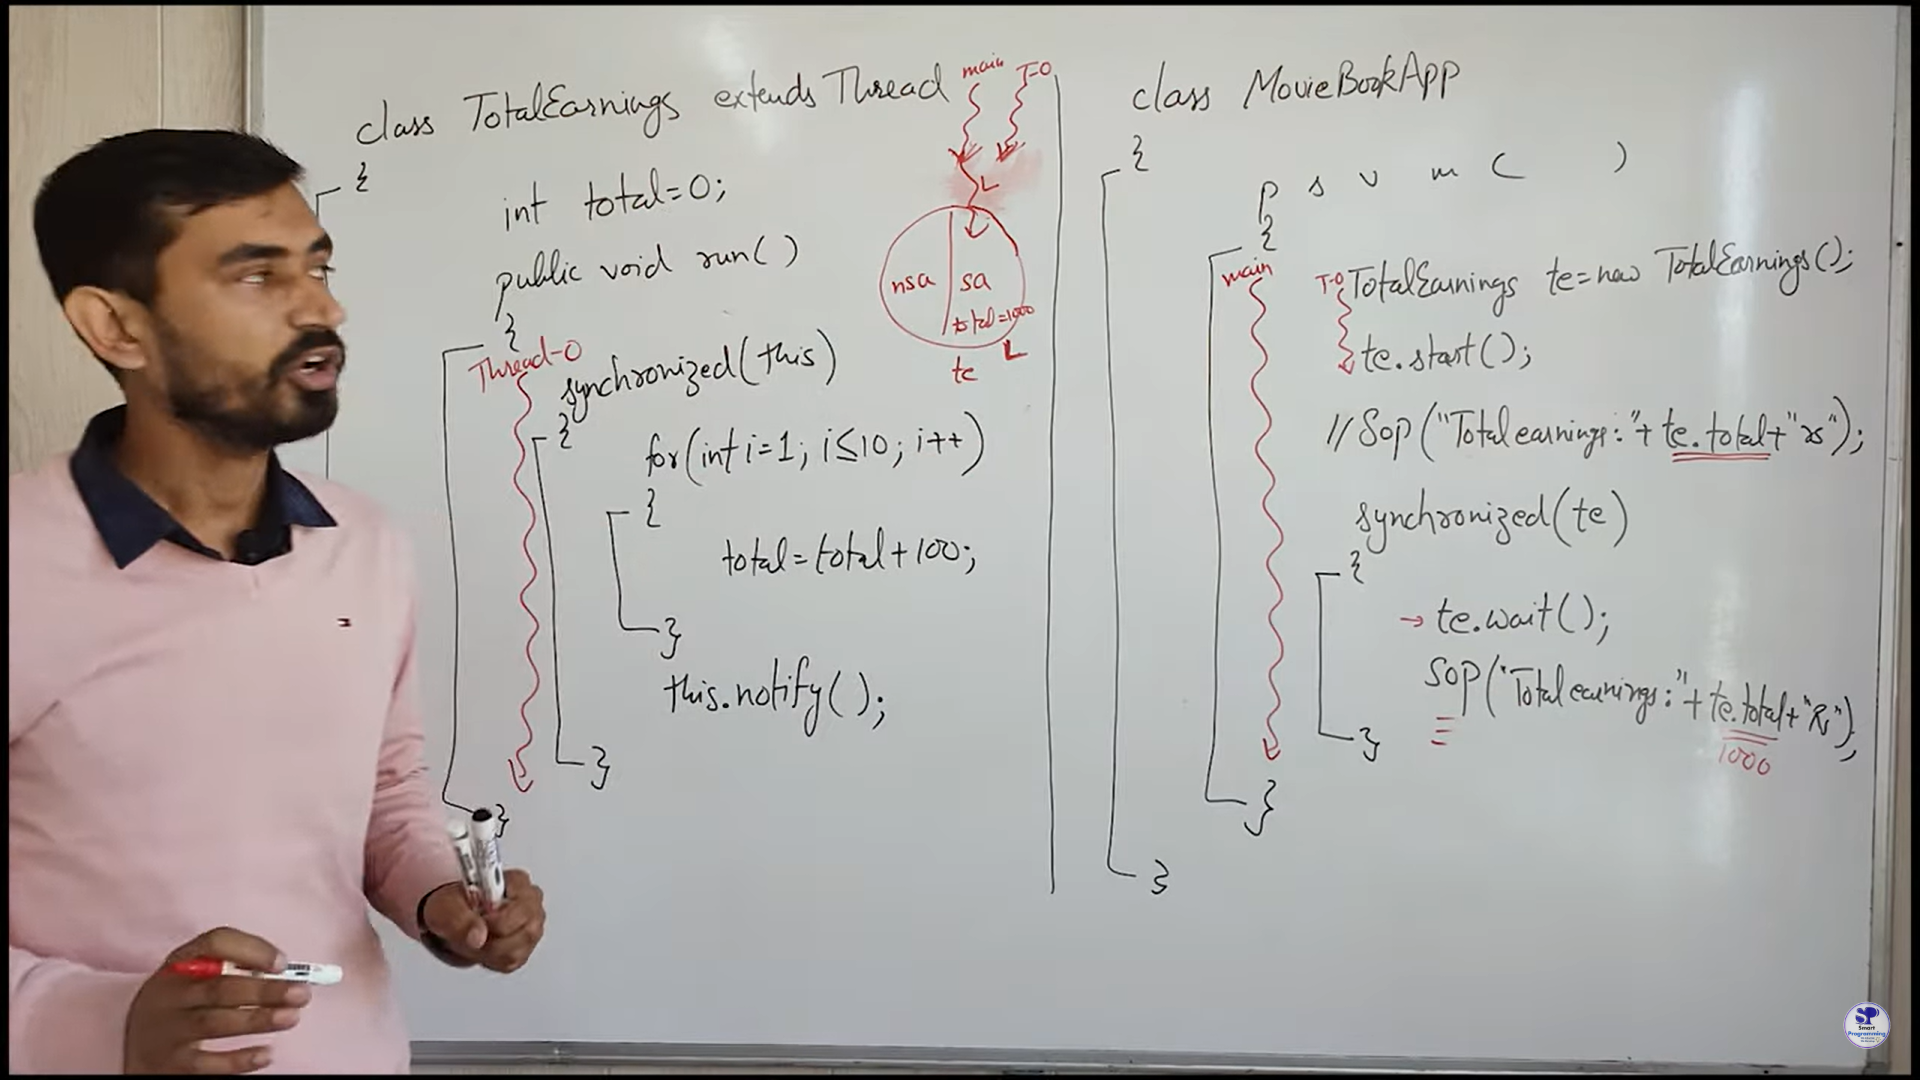 class TotalEarnings extends Thread
{
int total=0;
public void run()
{
Thread-0
synchronized(this)
{
for(int i=1; i≤10; i++)
{
total=total+100;
}
this.notify();
}
}
main T-0
nsa sa
total=1000
te
class MovieBookApp
{
p s v m ( )
{
main
T-0 TotalEarnings te=new TotalEarnings();
te.start();
//Sop("Total earnings:"+ te.total+"rs");
synchronized(te)
{
→ te.wait();
SOP("Total earnings:"+te.total+"Rs");
1000
}
}
}
SP
Smart
Programming